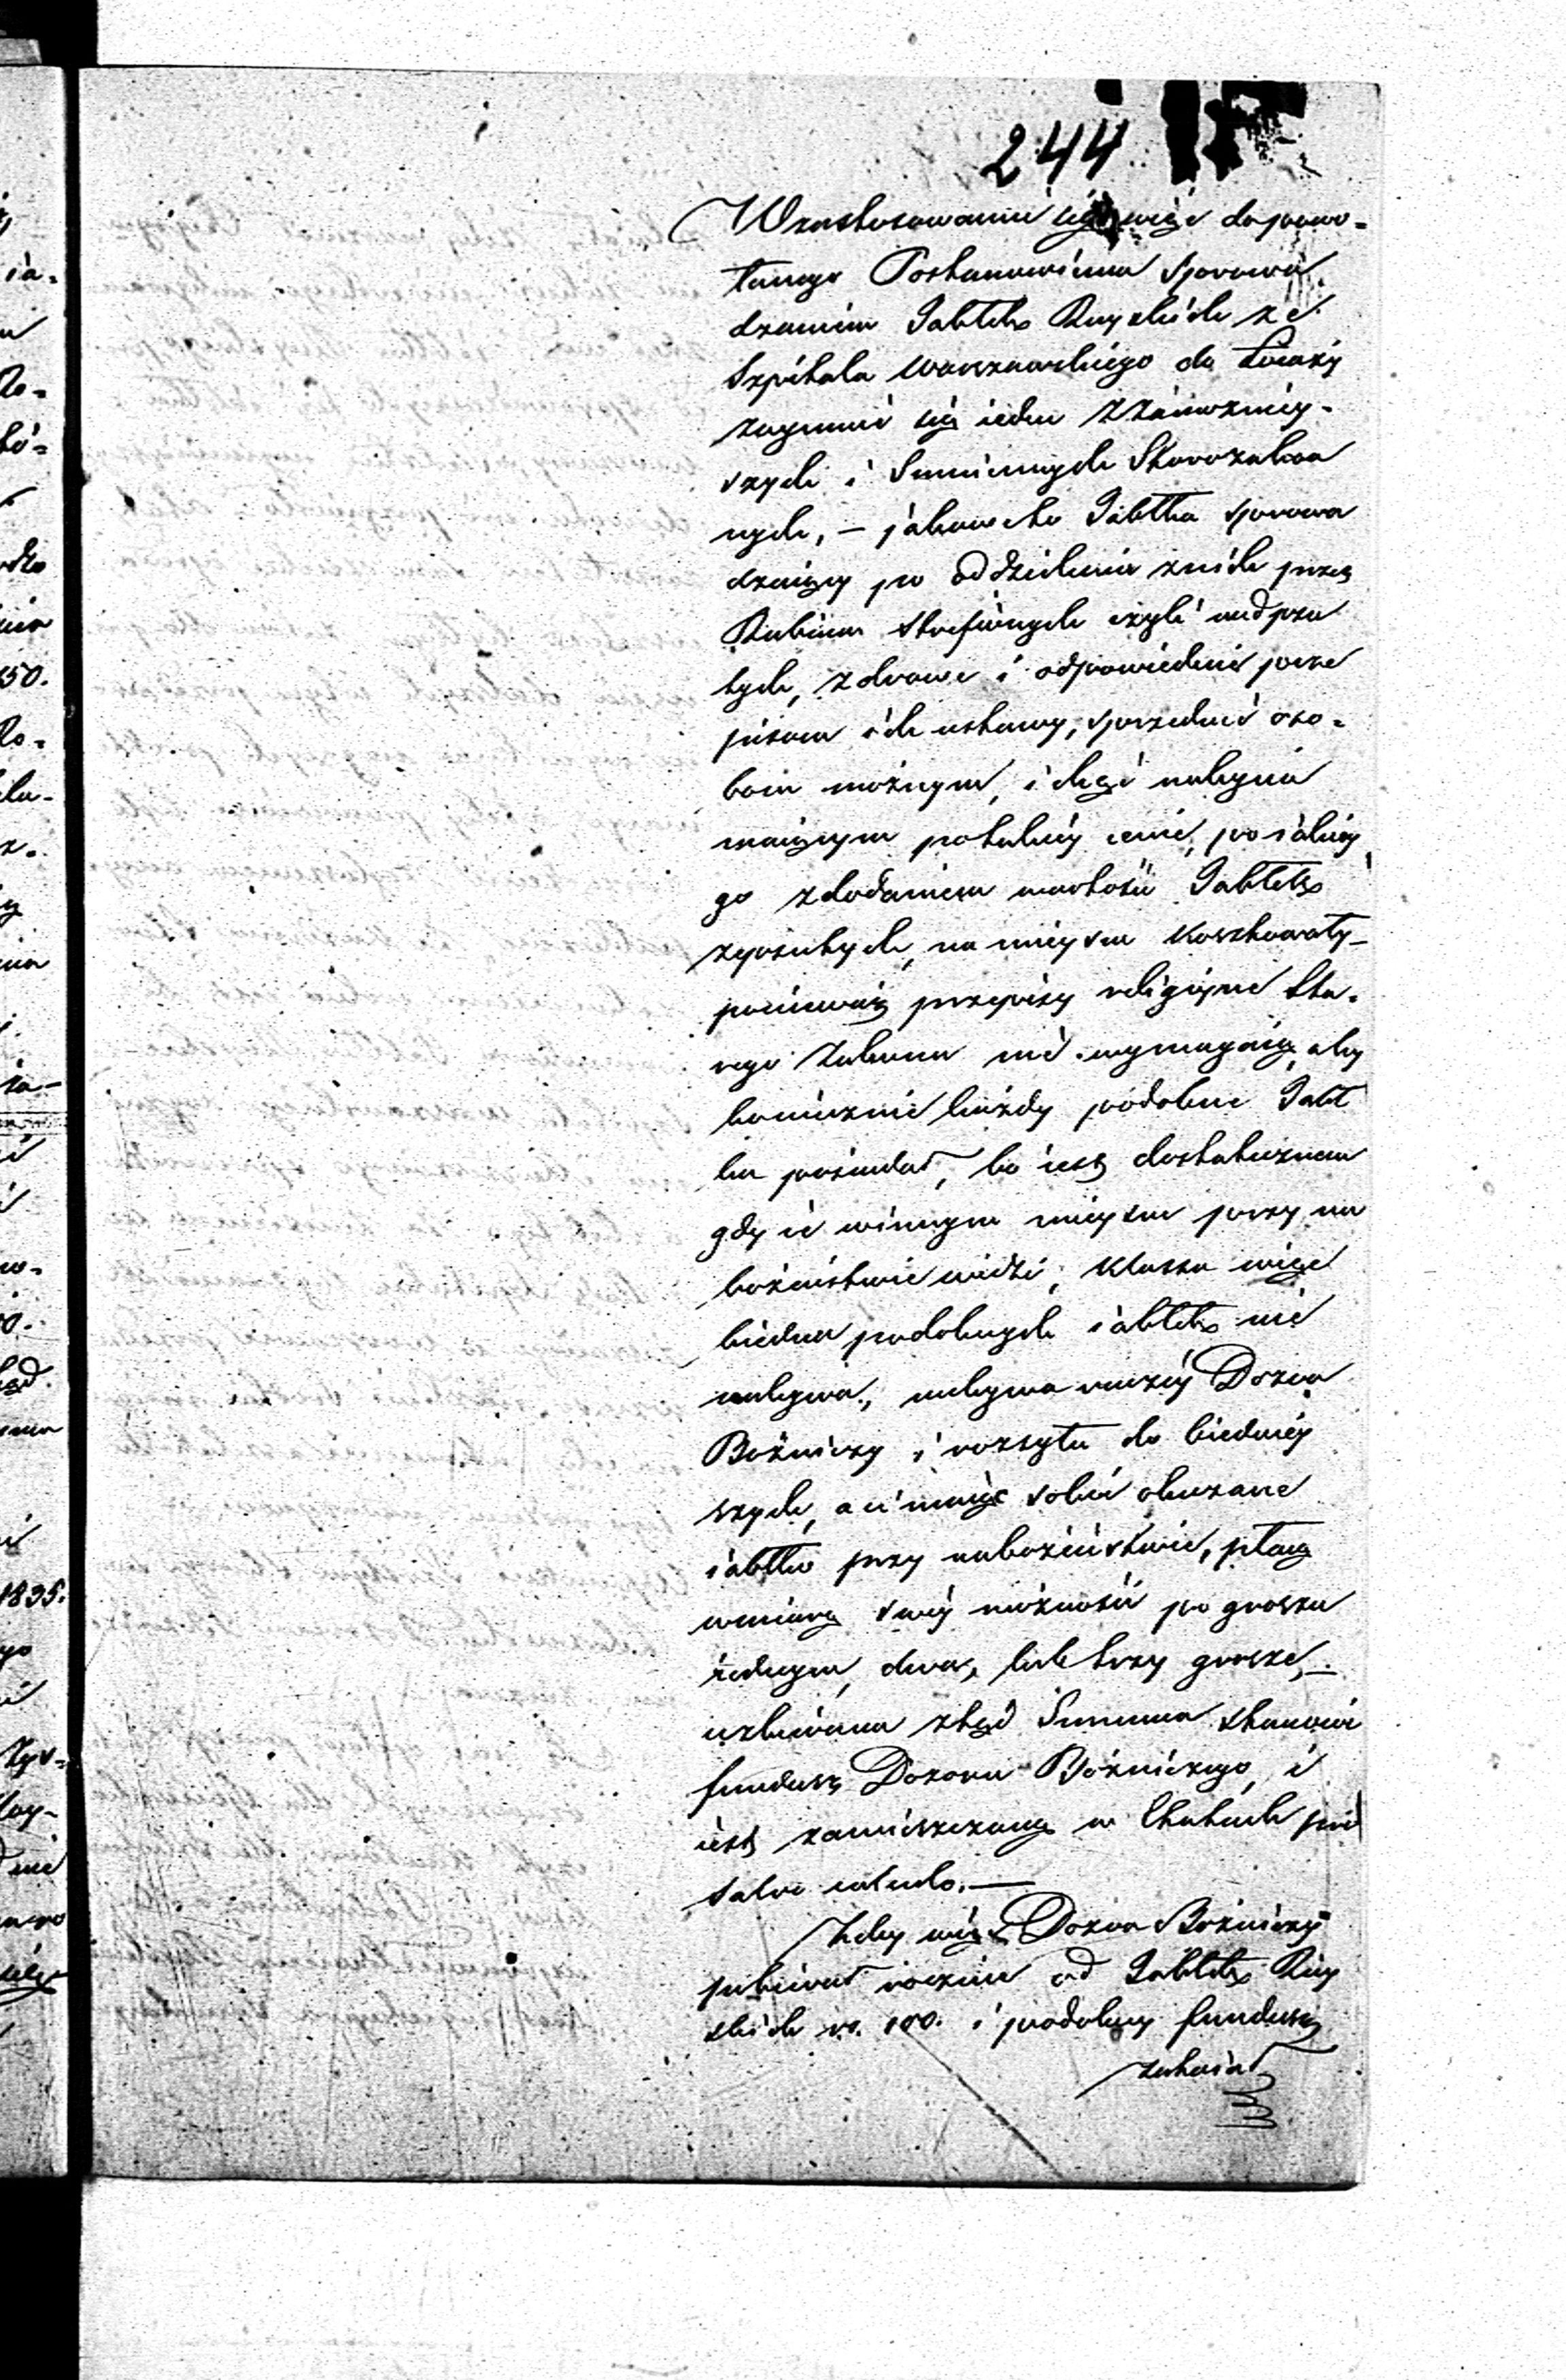 244
W zastosowaniu się więc do powo-
łanego Postanowienia sprowa
dzaniem Jabłek Rayskich ze
Szpitala Warszawskiego do Łomży
zaymuie się ieden z zamożniey-
szych i Sumiennych Starozakon
nych, – jakowe to Jabłka sprowa
dzaiący po oddzieleniu z nich przez
Rabina trefównych czyli nadpsu
tych, zdrowe i odpowiednie prze
pisom ich ustawy, sprzedaie oso-
bom możnym, i chęć nabycia
maiącym po takiéy cenie, po iakiey
go z dodaniem wartości Jabłek
zepsutych, na mieyscu kosztowały –
ponieważ przepisy religiyne Sta-
rego Zakonu nie wymagaią, aby
koniecznie każdy podobne Jabł
ko posiadał, bo iest dostatecznem
gdy ie w innym mieyscu przy na
bożeństwie widzi, Klassa więc
biedna podobnych iabłek nie
nabywa, nabywa raczéy Dozór
Bóżniczy i rozsyła do biedniéy
szych, a ci maiąc sobie okazane
iabłko przy nabożeństwie, płacą
w miarę swéy możności po groszu
iednym, dwa, lub trzy grosze, –
uzbierana ztąd Summa stanowi
fundusz Dozoru Bóżniczego, i
iest zamieszczaną w Etatach pod
salvo calculo. –
Żeby więc Dozór Bóżniczy
pobierał rocznie od Jabłek Ray
skich rs. 100. i podobny fundusz
zataiał
ia-
50.
1835.